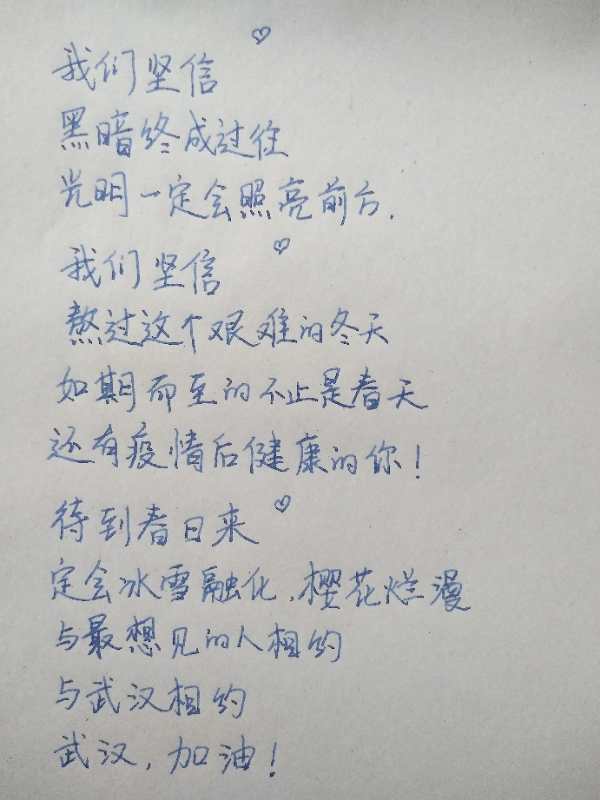 我们坚信
黑暗终成过往
光明一定会照亮前方.
我们坚信
熬过这个艰难的冬天
如期而至的不止是春天
还有疫情后健康的你!
待到春日来
定会冰雪融化,樱花烂漫
与最想见的人相约
与武汉相约
武汉,加油!